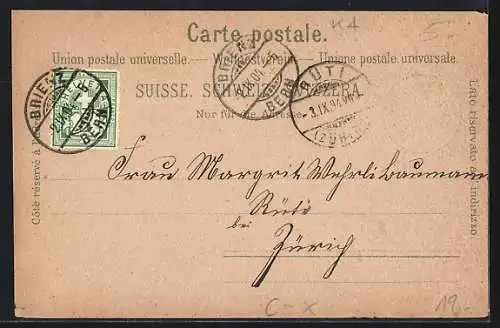 KA
5.
Carte postale.
Union postale universelle. Weltpostverein. Unione postale universale.
SUISSE. SCHWEIZ. SVIZZERA.
Nur für die Adresse.
BRIENZ
BERN
BRIENZ
BERN
RÜTI
3.IX.94
(ZÜRICH)
Côté réservé à l'adresse
Lato riservato all'indirizzo
Frau Margrit Wehrli Baumann
Rüti
bei
Zürich
C-X
18.-